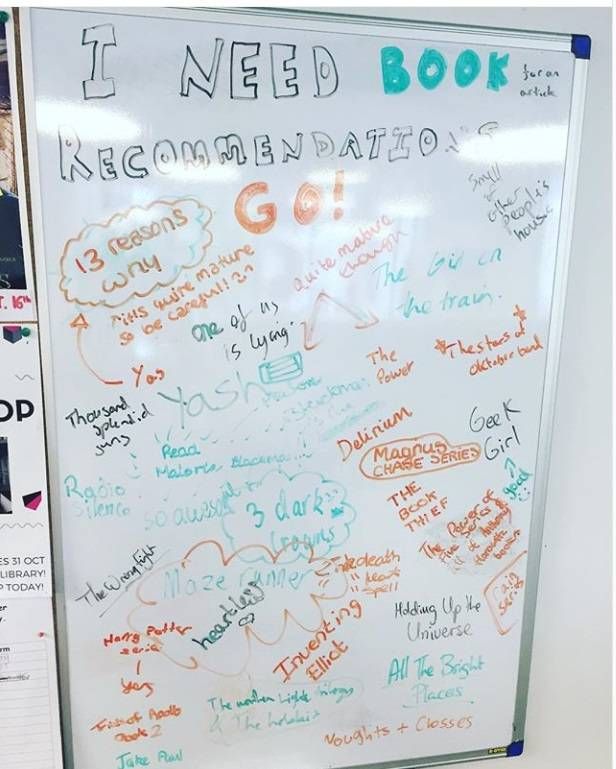 I NEED BOOK
for an
article
RECOMMENDATIONS
GO!
Smell
of
other
people's
houses
13 reasons
why
quite mature
though
this quite mature
so be careful!!
The Girl on
the train.
one of us
is lying.
Yas
The
Power
The stars at
oktober bend
Thousand
splendid
suns
Yash
Read
Malorie Blackman
Delirium
Geek
Girl
good
MAGNUS
CHASE SERIES
Radio
Silence
so awesome
3 dark
crowns
THE
BOOK
THIEF
The Power of
five series
The Wrong Light
Maze runner
heartless
death
heart
spell
Inventing
Elliot
Holding Up the
Universe
series
Harry Potter
series
yas
All The Bright
Places
book 2
& The
Noughts + Crosses
Jake Paul
T. 16th
OP
ES 31 OCT
LIBRARY!
P TODAY!